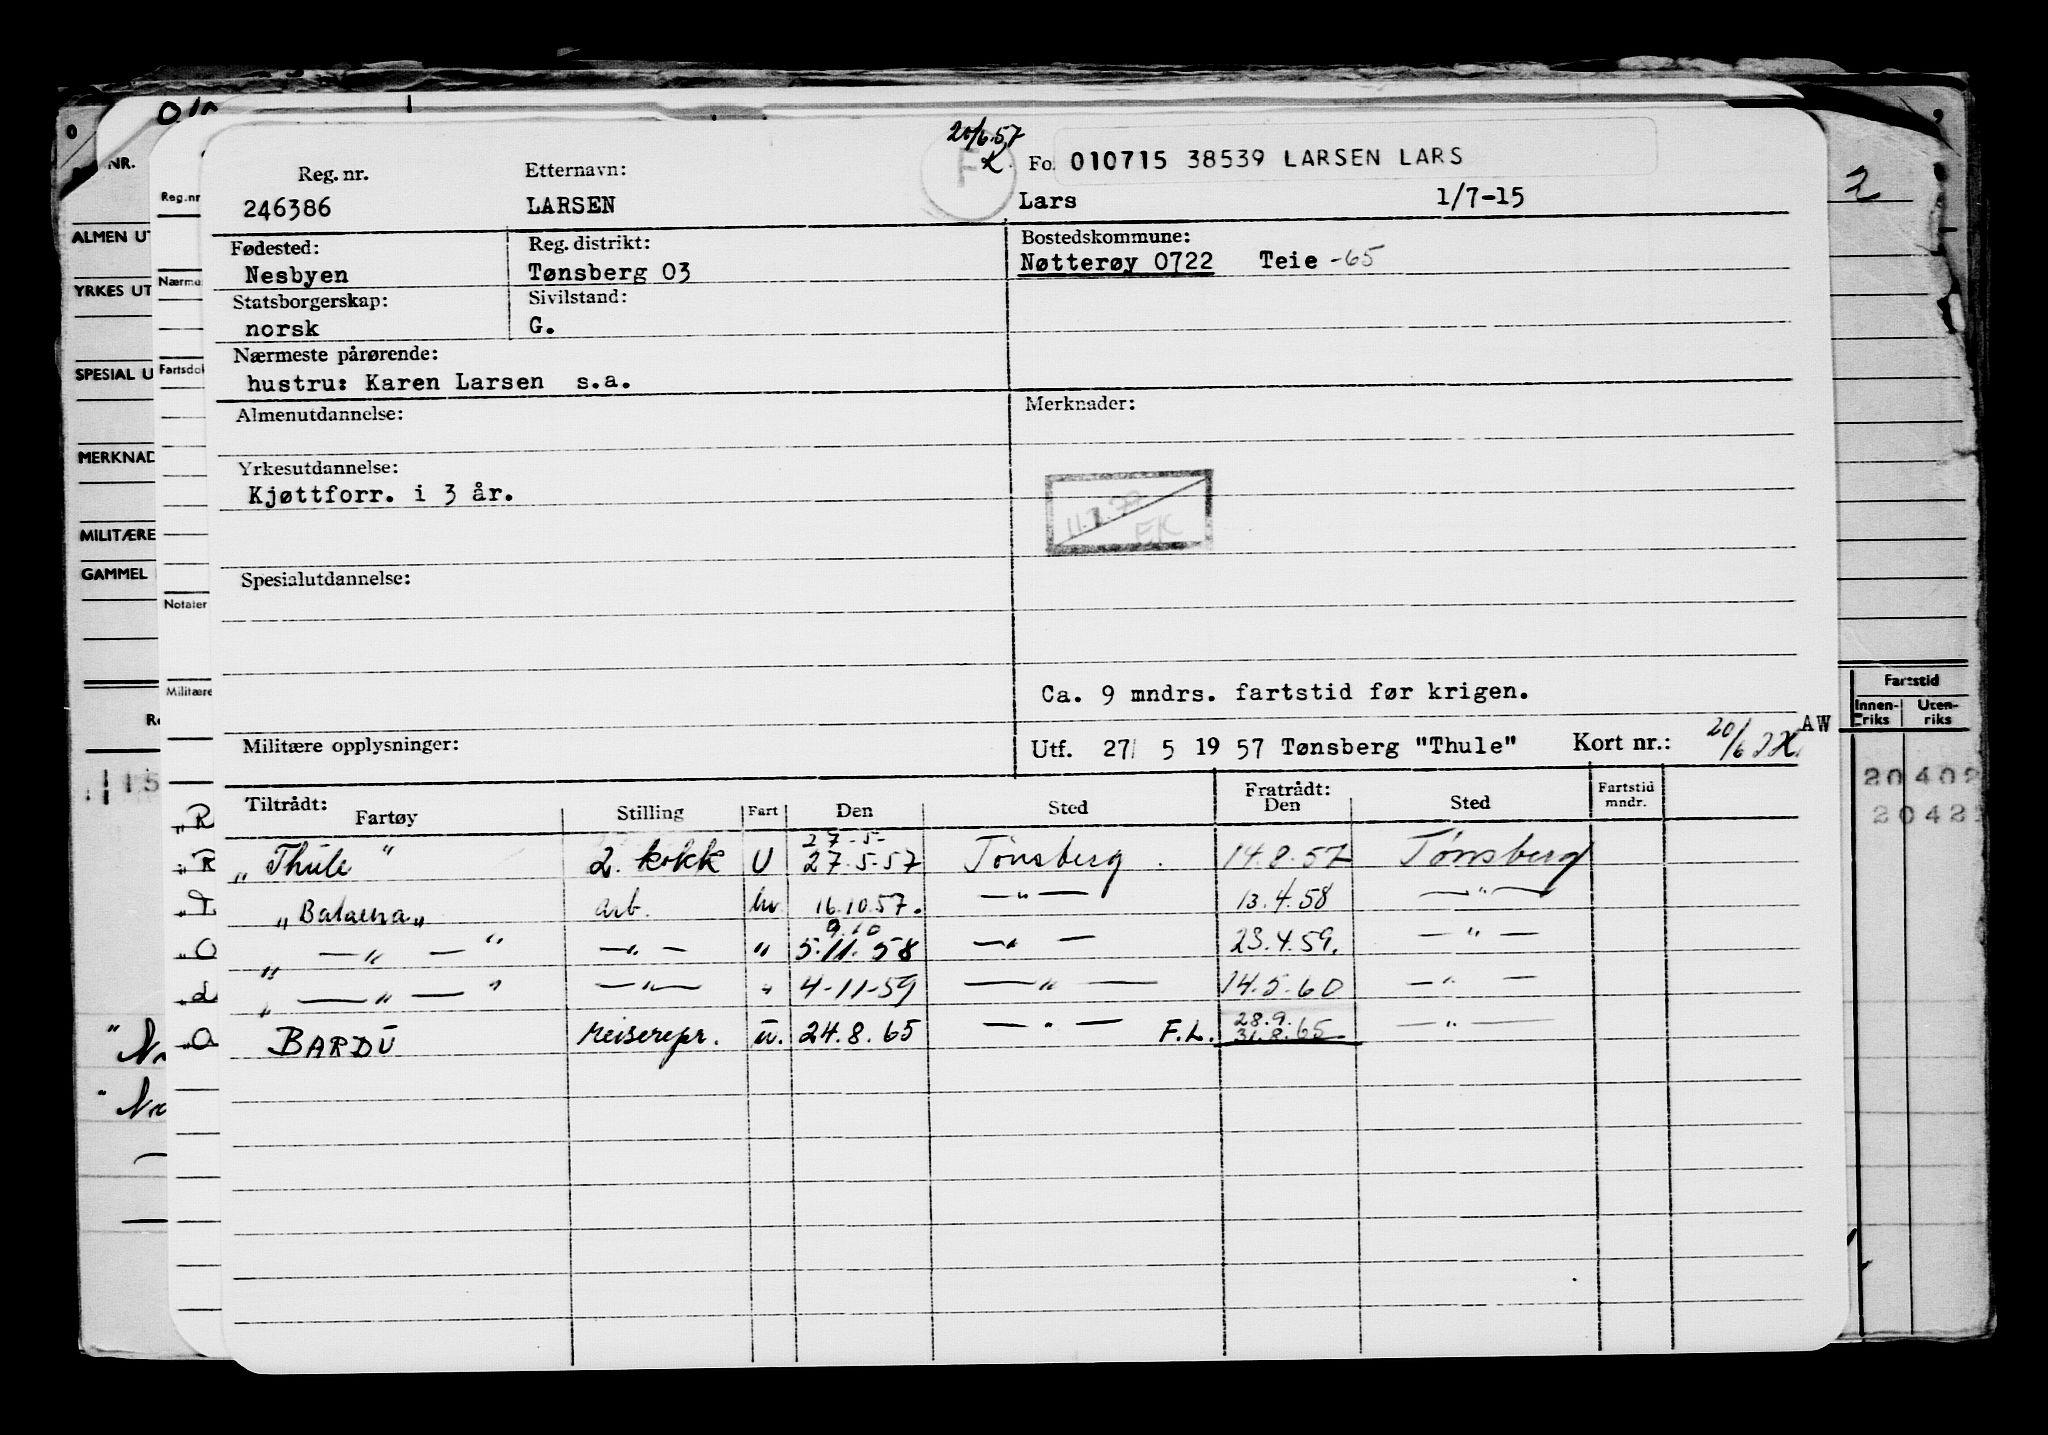 20/6.57
Reg. nr. Etternavn: F K. Fo. 010715 38539 LARSEN LARS
246386 LARSEN Lars 1/7-15
2
Fødested: Reg. distrikt: Bostedskommune:
Nesbyen Tønsberg 03 Nøtterøy 0722 Teie -65
Statsborgerskap: Sivilstand:
norsk G.
Nærmeste pårørende:
hustru: Karen Larsen s.a.
Almenutdannelse: Merknader:
Yrkesutdannelse:
Kjøttforr. i 3 år.
EK
Spesialutdannelse:
Ca. 9 mndrs. fartstid før krigen.
Militære opplysninger: Utf. 27/ 5 19 57 Tønsberg "Thule" Kort nr.: 20/6 AW
Tiltrådt: Fratrådt:
Fartøy Stilling Fart Den Sted Den Sted Fartstid mndr.
27-5-
„Thule" 2. kokk U 27.5.57 Tønsberg. 14.8.57 Tønsberg
„Balaena„ arb. hv. 16.10.57. —"— 13.4.58 —"—
9.10
„—„—" —„— " 5.11.58 —„— 23.4.59. —"—
„—„—" —"— " 4-11-59 —"— 14.5.60 —"—
28.9.
BARDU reiserepr. u. 24.8.65 —"— F.L. 31.8.65 —"—
NR.
ALMEN UT
YRKES UT
SPESIAL U
MERKNAD
MILITÆRE
GAMMEL
Reg.nr
Nærme
Fartsdok
Notater
Militære
Fartstid
Innen-riks Uten-riks
20402
2042